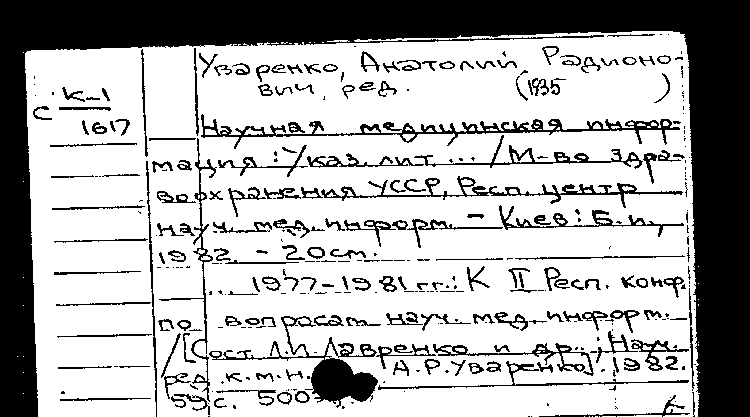 Уваренко, Анатолий Радионо-
вич, ред. (1935 )
С К-1
1617
Научная медицинская инфор-
мация : Указ. лит. ... / М-во здра-
воохранения УССР, Респ. центр
науч. мед. информ. - Киев : Б. и.,
1982. - 20 см.
... 1977-1981 гг. : К II Респ. конф.
по вопросам науч. мед. информ.
/ [Сост. Л.И. Лавренко и др. ; Науч.
ред. к.м.н. А.Р. Уваренко]. 1982.
59 с. 500